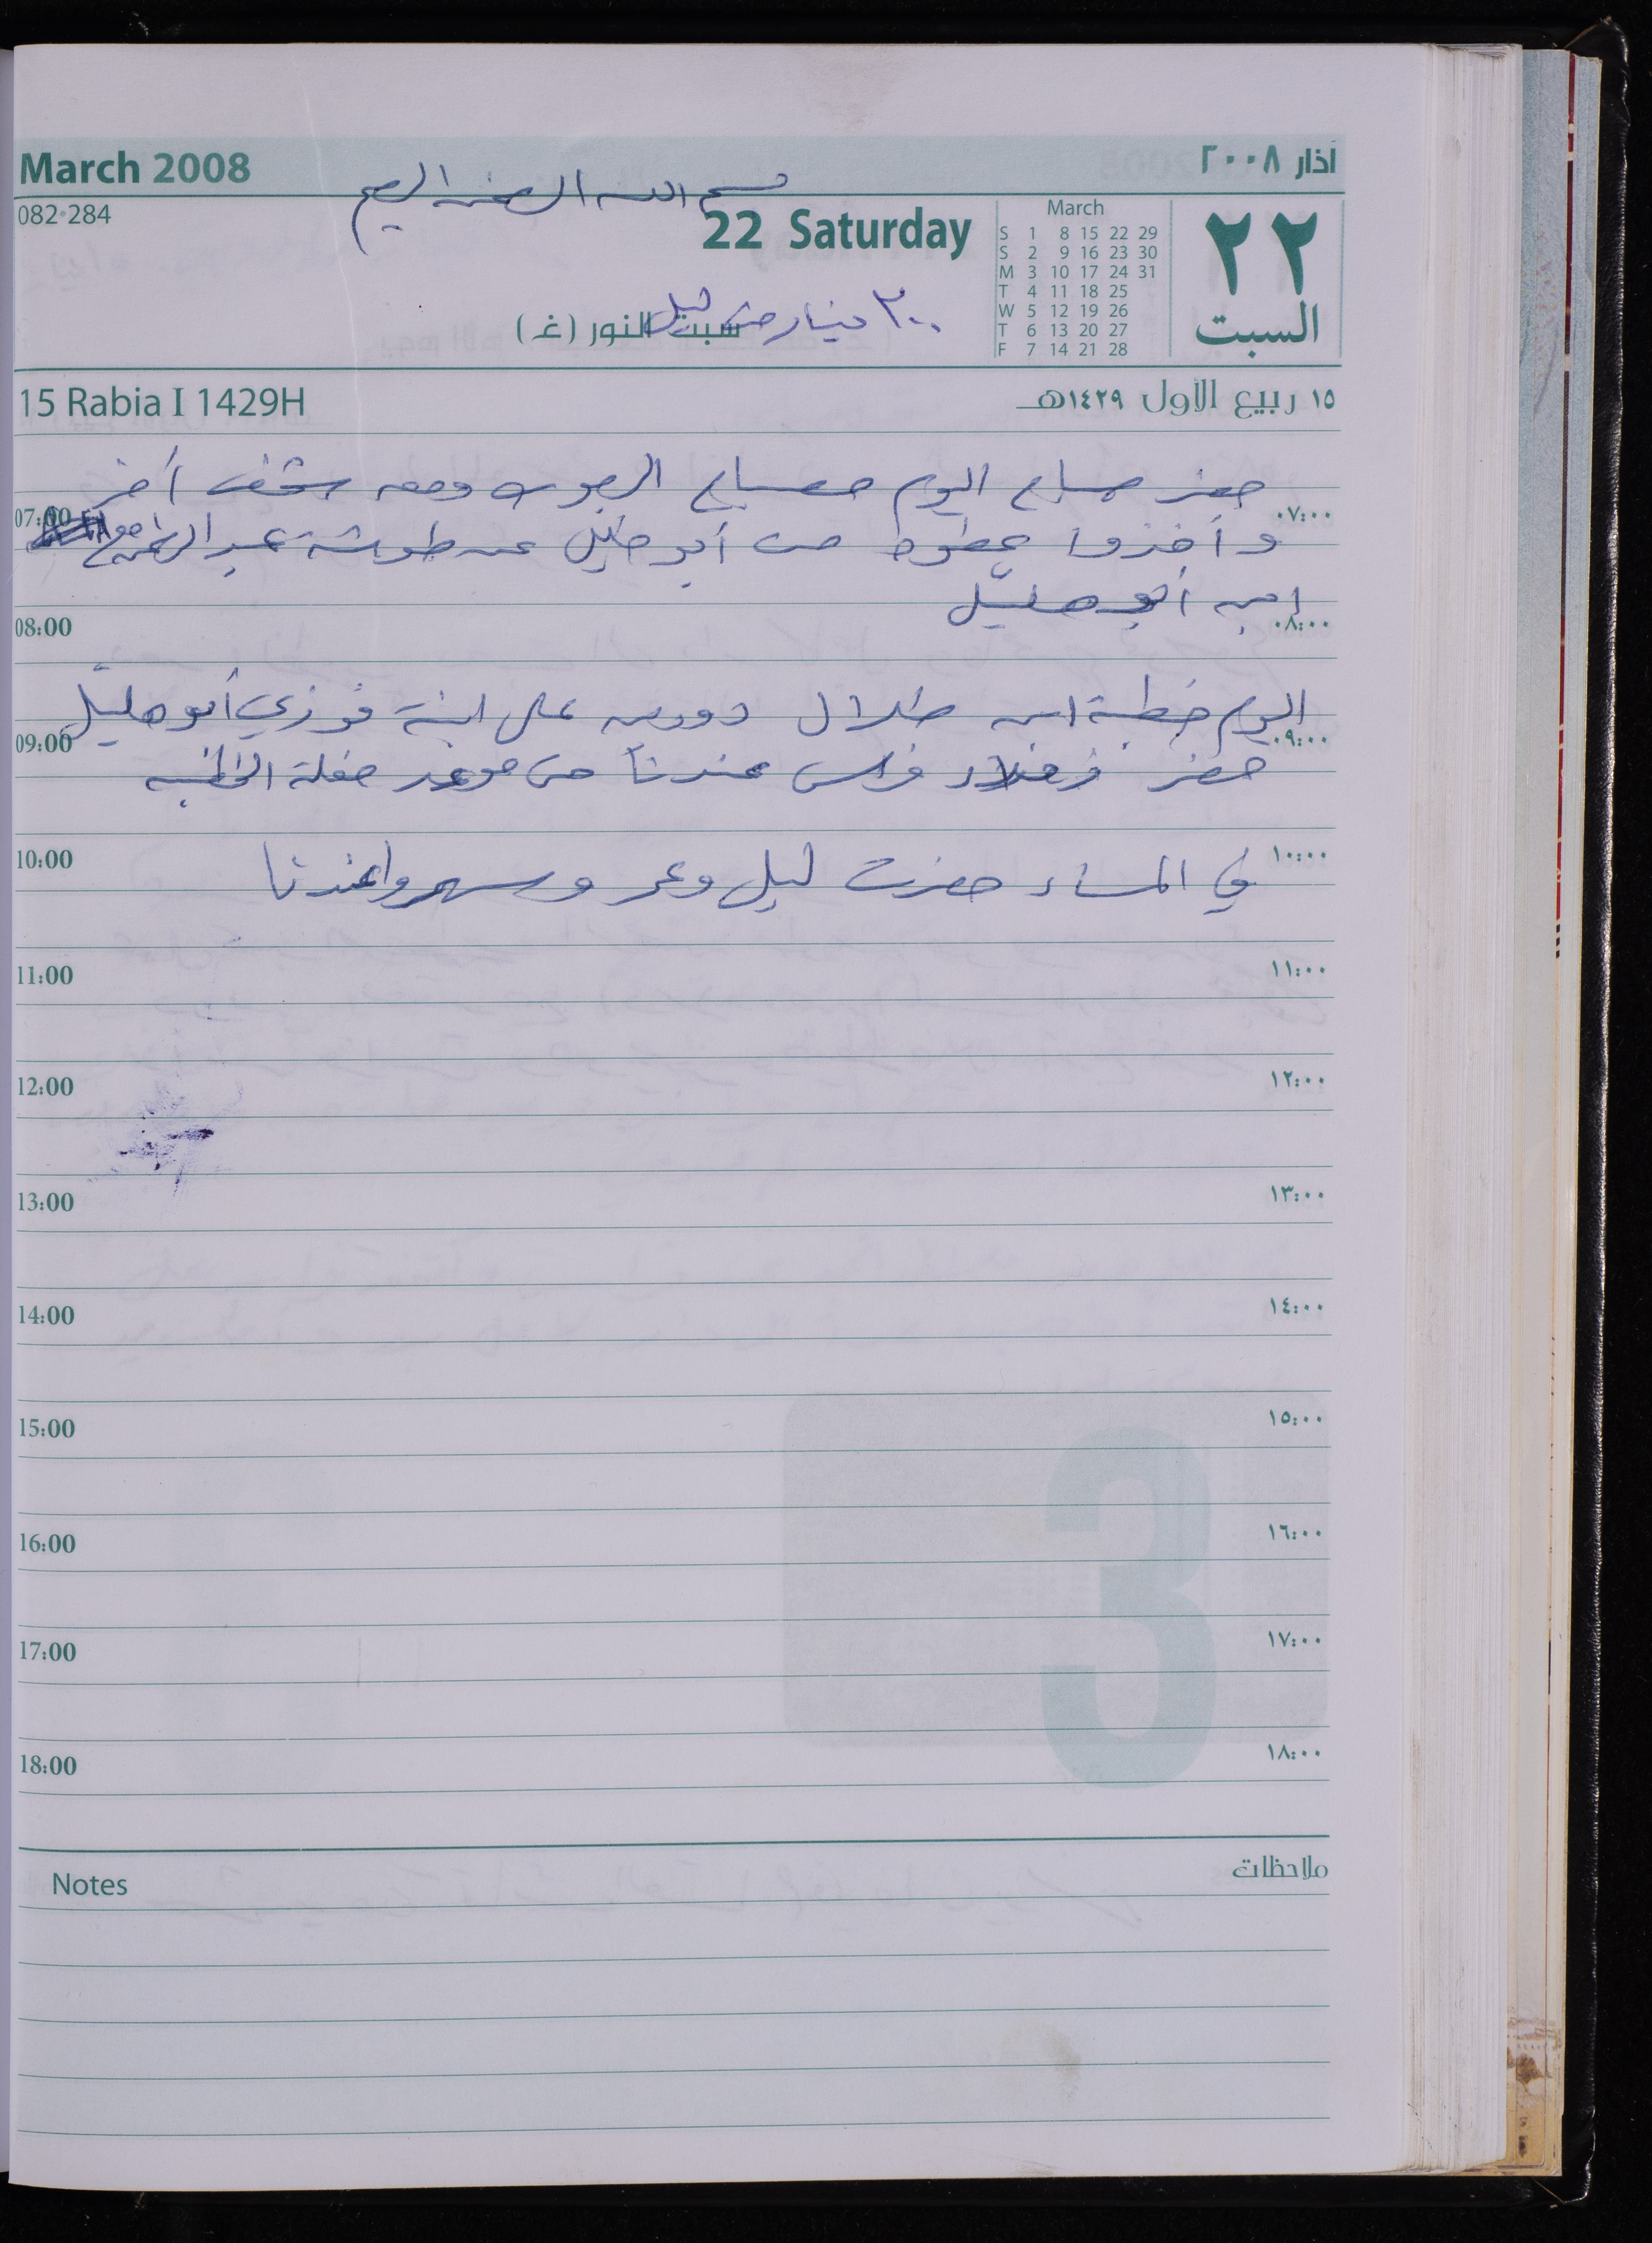 March 2008
آذار ٢٠٠٨
بسم الله الرحمن الرحيم
082-284
22 Saturday
March
S 1 8 15 22 29
S 2 9 16 23 30
M 3 10 17 24 31
T 4 11 18 25
W 5 12 19 26
T 6 13 20 27
F 7 14 21 28
٢٢
السبت
٢٠٠ دينار من ليلى
سبت النور (غ)
15 Rabia I 1429H
١٥ ربيع الأول ١٤٢٩هـ
حضر صباح اليوم مصباح العبوت ومعه شخص آخر
07:00 ٠٧:٠٠
وأخذوا عطوة من أبو خليل عن طوشة عبد الرحمن مع
ابن أبو هليّل
08:00 ٠٨:٠٠
اليوم خطبة ابن طلال دودين على ابنة فوزي أبو هليّل
09:00 ٠٩:٠٠
حضر زملاء فراس عندنا من موعد حفلة الخطبه
10:00 ١٠:٠٠
في المساء حضرت ليلى وعمر وسهروا عندنا
11:00 ١١:٠٠
12:00 ١٢:٠٠
13:00 ١٣:٠٠
14:00 ١٤:٠٠
15:00 ١٥:٠٠
16:00 ١٦:٠٠
17:00 ١٧:٠٠
18:00 ١٨:٠٠
3
Notes
ملاحظات